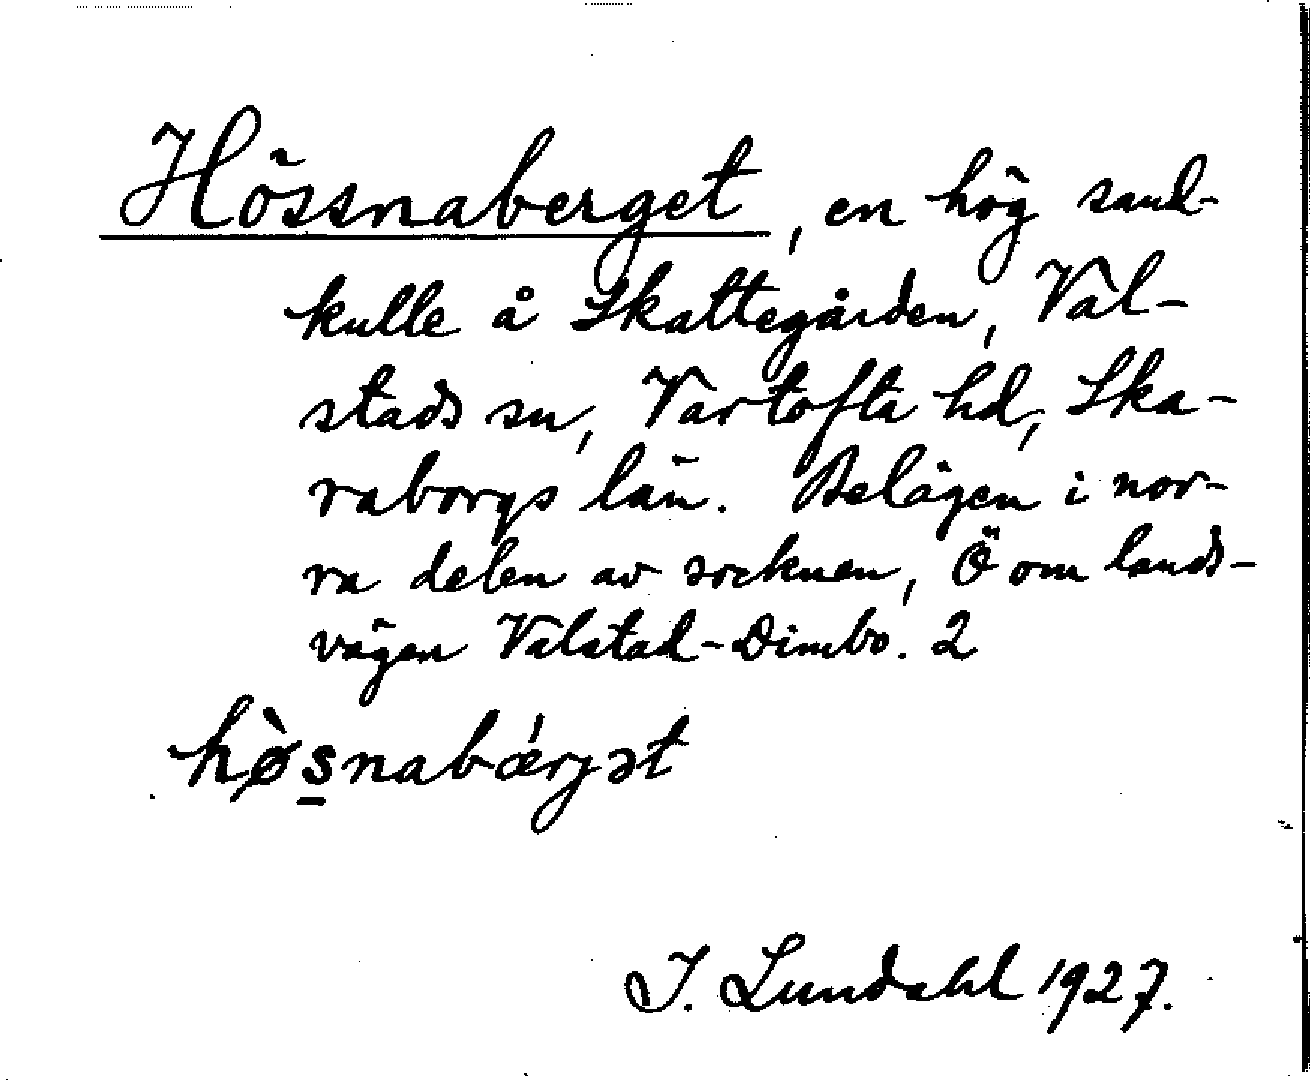 Hössnaberget, en hög sand-
kulle å Skattegården, Val-
stads sn, Vartofta hd, Ska-
raborgs län. Belägen i nor-
ra delen av socknen, Ö om lands-
vägen Valstad-Dimbo. 2
hø̀s̠nabǽrjət
I. Lundahl 1927.